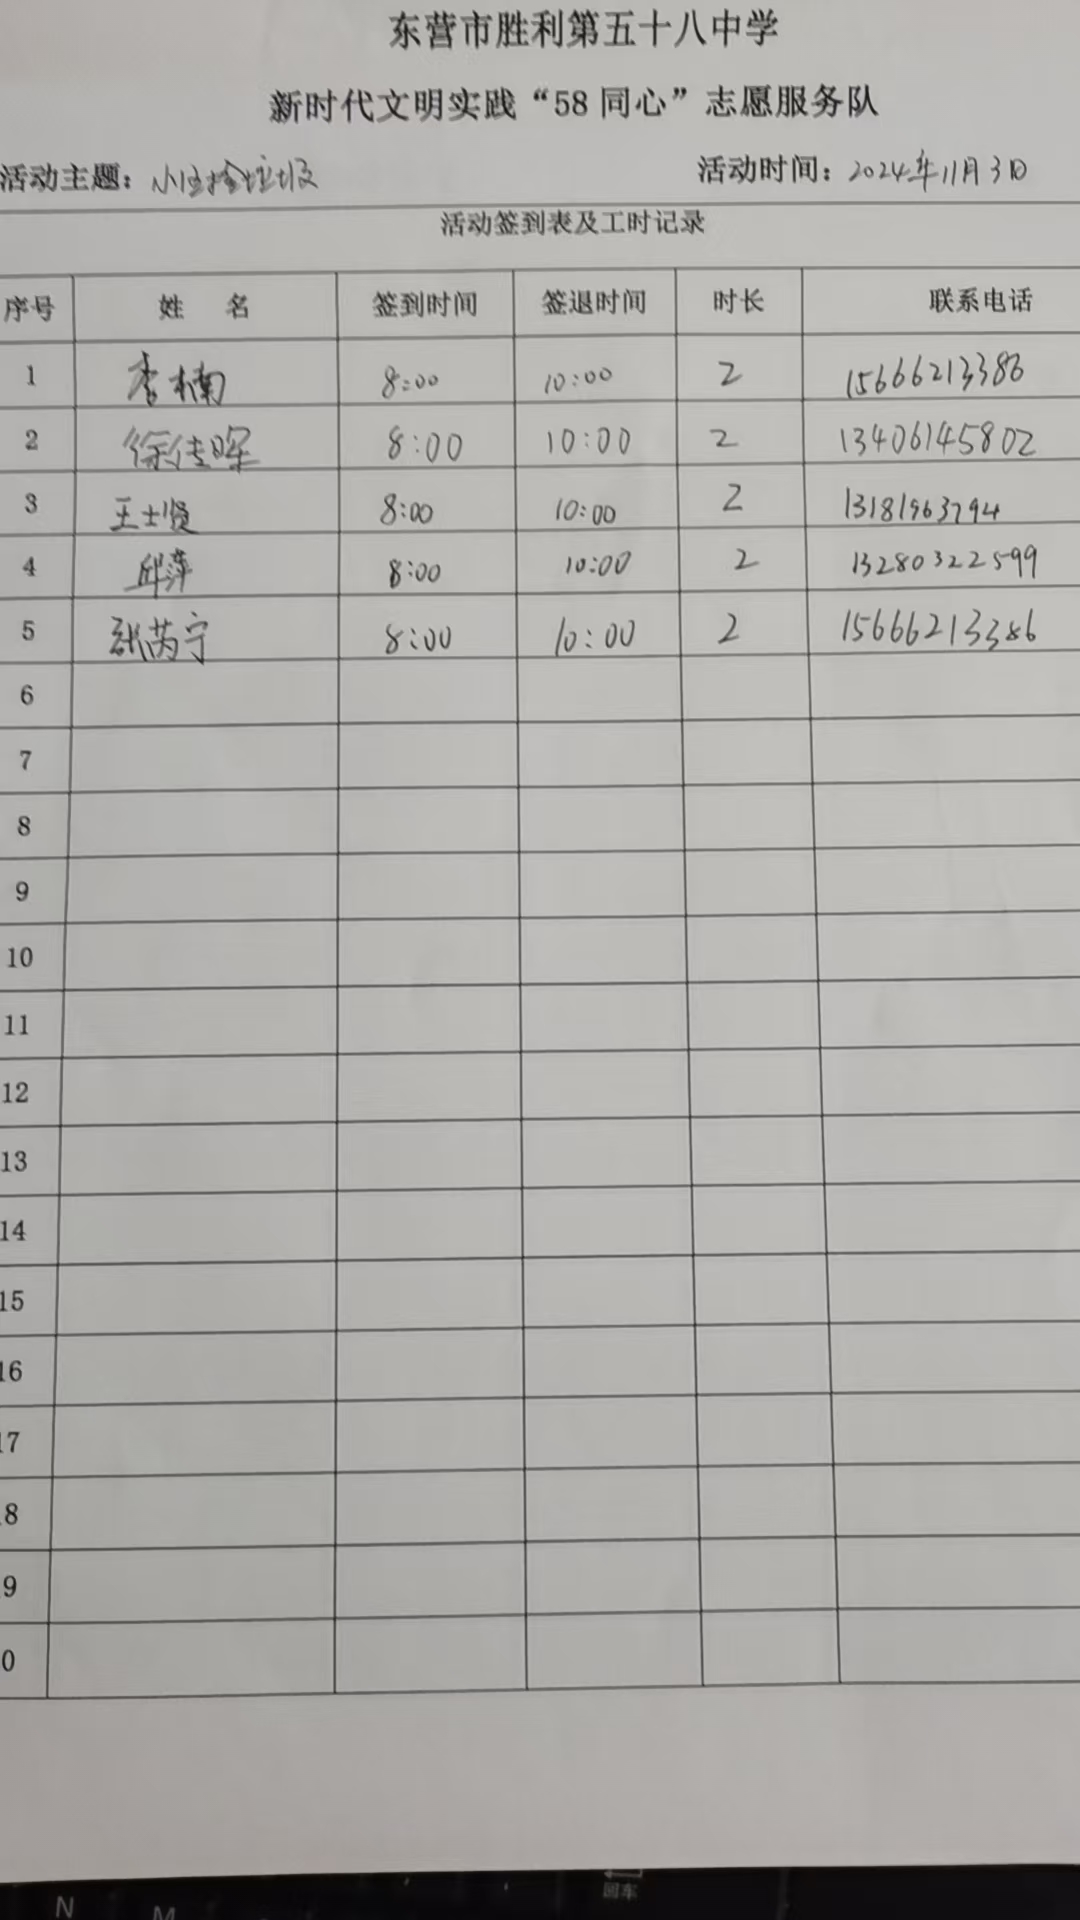 东营市胜利第五十八中学
新时代文明实践“58同心”志愿服务队
活动主题：小区捡垃圾 活动时间：2024年11月3日
活动签到表及工时记录
序号 姓 名 签到时间 签退时间 时长 联系电话
1 李楠 8:00 10:00 2 15666213386
2 徐佳晖 8:00 10:00 2 13406145802
3 王士贤 8:00 10:00 2 13181963794
4 邱萍 8:00 10:00 2 13280322599
5 张芮宁 8:00 10:00 2 15666213386
6
7
8
9
10
11
12
13
14
15
16
17
8
9
0
N M 回车